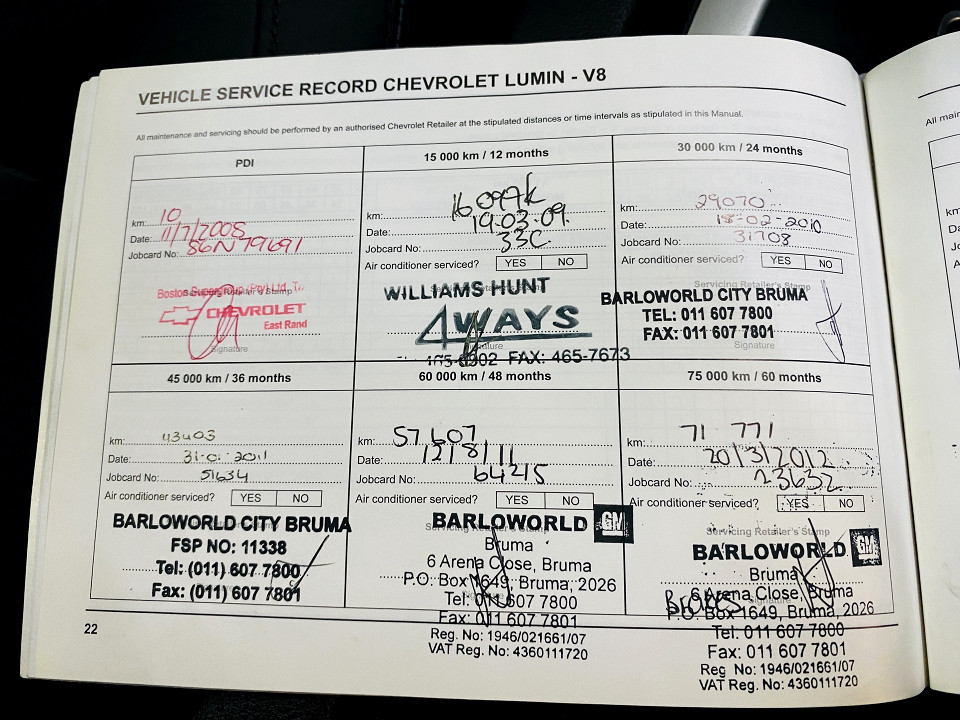 VEHICLE SERVICE RECORD CHEVROLET LUMIN - V8
All maintenance and servicing should be performed by an authorised Chevrolet Retailer at the stipulated distances or time intervals as stipulated in this Manual.
PDI
km: 10
Date: 11/7/2008
Jobcard No: 86N79691
CHEVROLET
East Rand
Signature
15 000 km / 12 months
km: 16097k
Date: 19-03-09.
Jobcard No: 33C
Air conditioner serviced? YES NO
WILLIAMS HUNT
4WAYS
465-6902 FAX: 465-7673
30 000 km / 24 months
km: 29070
Date: 18-02-2010
Jobcard No: 31708
Air conditioner serviced? YES NO
Servicing Retailer's Stamp
BARLOWORLD CITY BRUMA
TEL: 011 607 7800
FAX: 011 607 7801
Signature
45 000 km / 36 months
km: 43403
Date: 31-01-2011
Jobcard No: 51634
Air conditioner serviced? YES NO
BARLOWORLD CITY BRUMA
FSP NO: 11338
Tel: (011) 607 7800
Fax: (011) 607 7801
60 000 km / 48 months
km: 57 607
Date: 12/8/11
Jobcard No: 64215
Air conditioner serviced? YES NO
BARLOWORLD GM
Bruma
6 Arena Close, Bruma
P.O. Box 1649, Bruma, 2026
Tel: 011 607 7800
Fax: 011 607 7801
Reg. No: 1946/021661/07
VAT Reg. No: 4360111720
75 000 km / 60 months
km: 71 771
Date: 20/3/2012
Jobcard No: 23632
Air conditioner serviced? YES NO
Servicing Retailer's Stamp
BARLOWORLD GM
Bruma
6 Arena Close, Bruma
Brakes
P.O. Box 1649, Bruma, 2026
Tel: 011 607 7800
Fax: 011 607 7801
Reg No: 1946/021661/07
VAT Reg. No: 4360111720
22